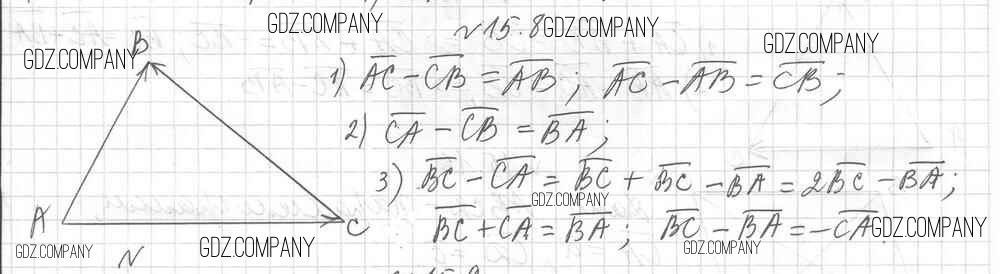 GDZ.COMPANY №15.8 GDZ.COMPANY
GDZ.COMPANY B GDZ.COMPANY
1) \overline{AC} - \overline{CB} = \overline{AB}; \overline{AC} - \overline{AB} = \overline{CB};
2) \overline{CA} - \overline{CB} = \overline{BA};
3) \overline{BC} - \overline{CA} = \overline{BC} + \overline{BC} - \overline{BA} = 2\overline{BC} - \overline{BA};
GDZ.COMPANY
A C \overline{BC} + \overline{CA} = \overline{BA}; \overline{BC} - \overline{BA} = -\overline{CA} GDZ.COMPANY
GDZ.COMPANY N GDZ.COMPANY GDZ.COMPANY